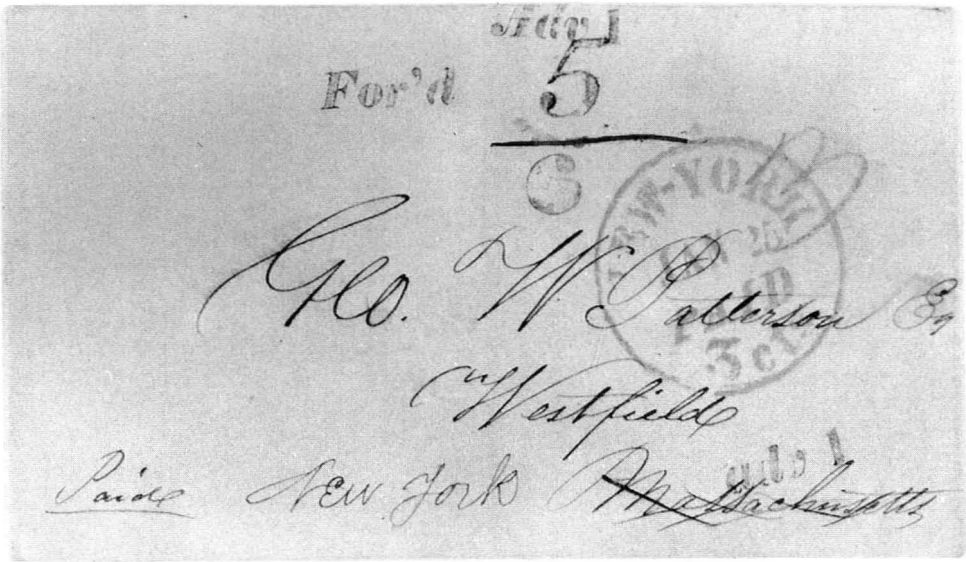 Adv 1
For'd 5
6
NEW-YORK
25
PAID
3 cts
Geo. W. Patterson Esq
Westfield
Paid New York Massachusetts